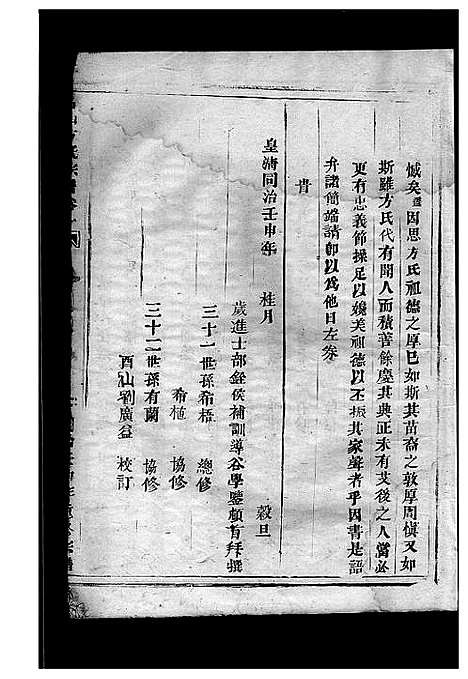 憾矣盖因思方氏祖德之厚已如斯其苗裔之敦厚周慎又如
斯雖方氏代有聞人而積善餘慶其典正未有艾後之人當必
更有忠義節操足以媲美祖德以丕振其家聲者乎因書是語
弁諸簡端請卽以為他日左券
旹
皇淸同治壬申年 桂月 穀旦
歲進士部銓侯補訓導谷學鹽頓首拜撰
三十一世孫希梧 總修
希植 協修
三十二世孫有蘭 協修
酉山劉廣益 校訂